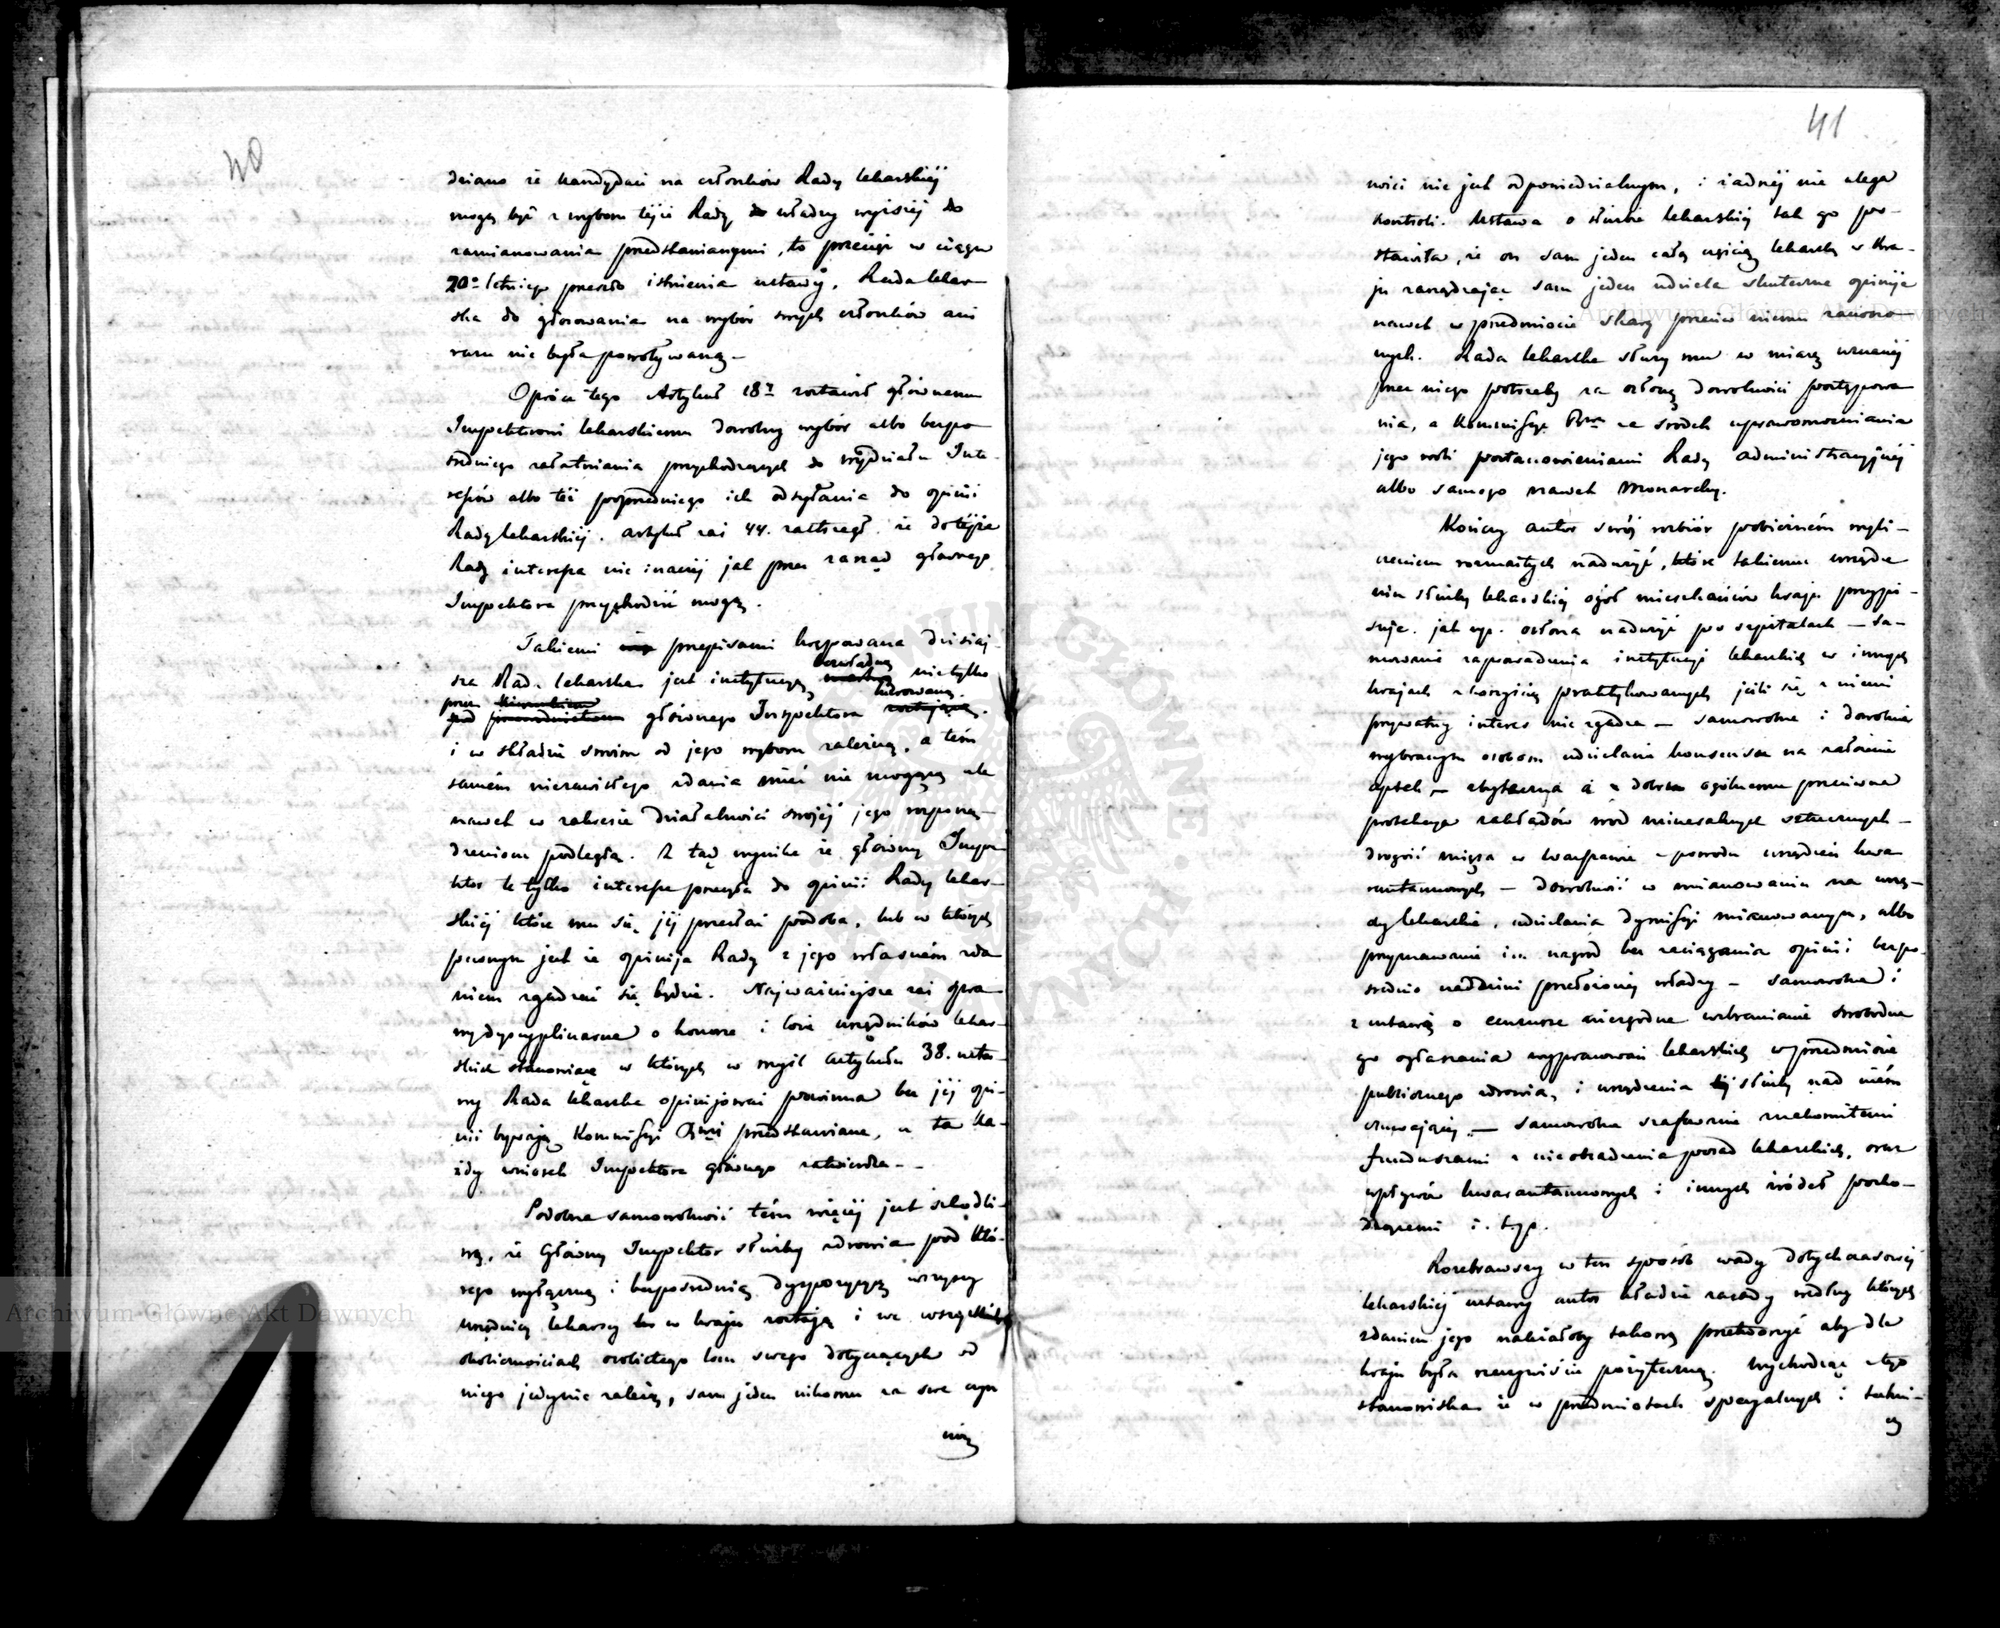 40
dziano że kandydaci na członków Rady lekarskiéj
mogą być z wyboru téjże Rady do władzy wyższéj do
zamianowania przedstawianymi, to przecięż w ciągu
20o letniego przeszło istnienia ustawy, Rada lekar-
ska do głosowania na wybór swych członków ani
razu nie była powoływaną –
Oprócz tego Artykuł 18y zostawił głównemu
Inspektorowi lekarskiemu dowolny wybór albo bezpo
średniego załatwiania przychodzących do wydziału Inte-
resów albo téż poprzedniego ich odsyłania do opinii
Rady lekarskiéj, artykuł zaś 44. zastrzegł że do téjże
Rady interessa nie inaczéj jak przez zarząd głównego
Inspektora przychodzić mogą.
Takiemi przepisami krępowana dzisiaj-
sza Rada lekarska jest instytucyą bezwładną nietylko
przez głównego Inspektora kierowaną.
i w składzie swoim od jego wyboru zależną, a tém
samém niezawisłego zdania mieć nie mogącą ale
nawet w zakresie działalności swojéj jego rozporzą-
dzeniom podległą. Z tąd wynika że główny Inspe
ktor te tylko interessa przesyła do opinii Rady lekar-
skiéj które mu się jéj przesłać podoba, lub w których
pewnym jest że opinija Rady z jego własném zda
niem zgadzać się będzie. Najważniejsze zaś spra
wy dyscyplinarne o honorze i losie urzędników lekar-
skich stanowiące w których w myśl artykułu 38. usta-
wy Rada lekarska opinijować powinna bez jéj opi-
nii bywają Kommissyi Rząi przedstawiane, a ta ka-
żdy wniosek Inspektora głównego zatwierdza –
Podobna samowolność tém więcéj jest szkodli-
wą, że Główny Inspektor służby zdrowia pod któ-
rego wyłączną i bezpośrednią dyspozycyą wszyscy
urzędnicy lekarscy w kraju zostają i we wszystkich
okolicznościach osobistego losu swego dotyczących od
niego jedynie zależą, sam jeden nikomu za swe czyn
ności
41
ności nie jest odpowiedzialnym, i żadnéj nie ulega
kontroli. Ustawa o służbie lekarskiéj tak go po-
stawiła, że on sam jeden całą częścią lekarską w kra-
ju zarządzając sam jeden udziela skuteczne opinije
nawet w przedmiocie skarg przeciw niemu zanoszo
nych. Rada lekarska służy mu w miarę uznanéj
przez niego potrzeby za osłonę dowolności postępowa
nia, a Kommissya Rzwa za środek uprawomocniania
jego woli postanowieniami Rady administracyjnéj
albo samego nawet Monarchy.
Kończy autor swój rozbiór pobieżném wyli-
czeniem rozmaitych nadużyć, które takiemu urządze
niu służby lekarskiéj ogół mieszkańców kraju przypi-
suje. jak np. osłona nadużyć po szpitalach – ta-
mowanie zaprowadzenia instytucyj lekarskich w innych
krajach z korzyścią praktykowanych jeśli się z niemi
prywatny interes nie zgadza – samowolne i dowolnie
wybranym osobom udzielanie konsensów na założenie
aptek – zbyteczna a z dobrem ogólnemu przeciwna
protekcya zakładów wód mineralnych sztucznych –
drogość mięsa w Warszawie z powodu urządzeń kwa
rantannowych – dowolność w mianowaniu na urzę-
dy lekarskie, udzielania dymissyi mianowanym, albo
przyznawanie im nagród bez zaciągania opinii bezpo-
średnio nad nimi przełożonéj władzy – samowolne i
z ustawą o cenzurze niezgodne wzbranianie swobodne
go ogłaszania wypracowań lekarskich w przedmiocie
publicznego zdrowia, i urządzenia służby nad niém
czuwającéj – samowolne szafowanie znakomitemi
funduszami z nieobsadzenia posad lekarskich, oraz
wpływów kwarantannowych i innych źródeł pocho-
dzącemi i. t. p.
Rozebrawszy w ten sposób wady dotychczasowéj
lekarskiéj ustawy autor kładzie zasady według których
zdaniem jego należałoby takową przetworzyć aby dla
kraju była rzeczywiście pożyteczną. Wychodząc z tego
stanowiska że w przedmiotach specyalnych i techni-
cz